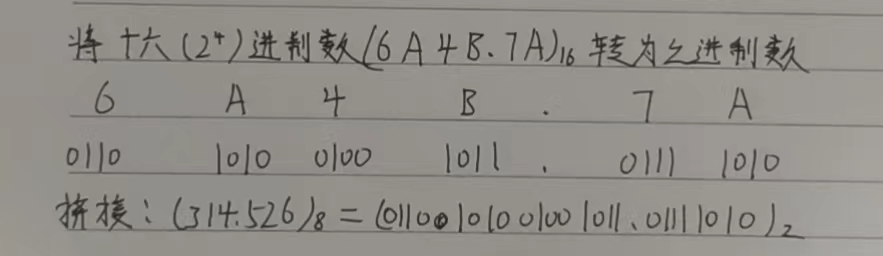 将十六(2⁴)进制数(6A4B.7A)₁₆转为二进制数
6 A 4 B . 7 A
0110 1010 0100 1011 . 0111 1010
拼接：(314.526)₈ = (01100101001001011.01111010)₂